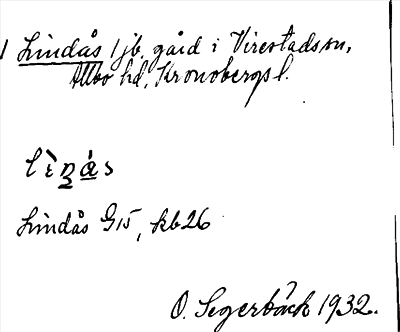 1 Lindås 1 jb. gård i Virestads sn,
Allbo hd, Kronobergs l.
lìn̠á̠s
Lindås G15, kb26
O. Segerbäck 1932.